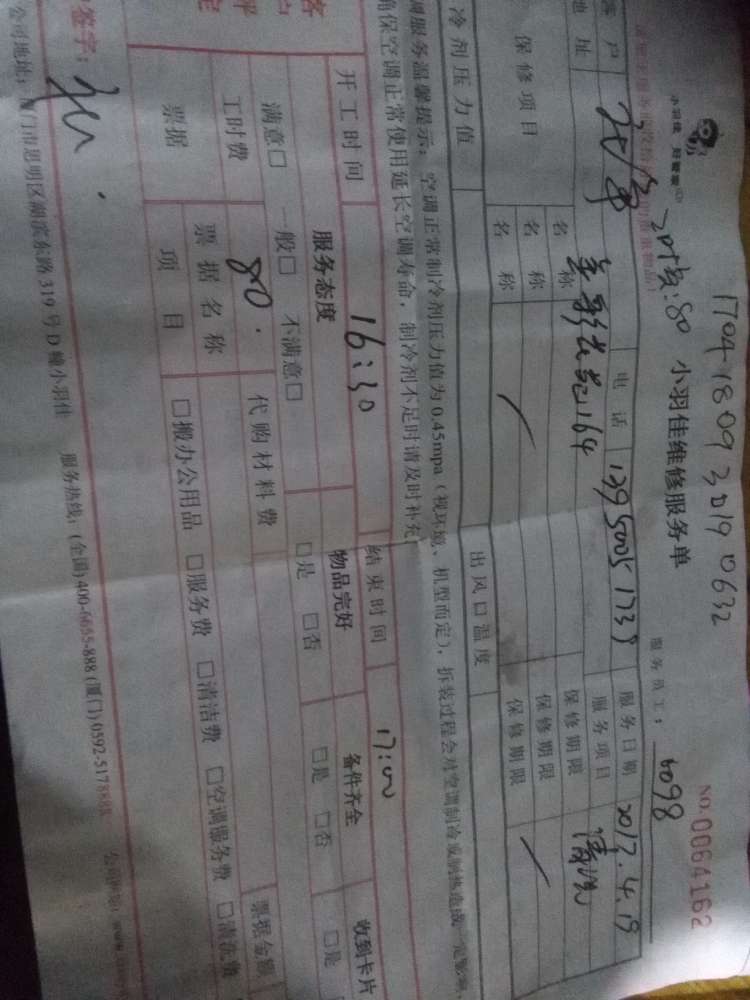 1704180930190632
小羽佳 好管家
20片:80 小羽佳维修服务单
服务员工: 6098
NO.0064162
客户 电话 13950051738 服务日期 2017.4.19
地址 164 服务项目 清洗
保修项目 名称 保修期限
名称 保修期限
名称 保修期限
冷剂压力值 出风口温度
调服务温馨提示: 空调正常制冷剂压力值为0.45mpa(视环境、机型而定), 拆装过程会对空调制冷或制热造成一定影响,
确保空调正常使用延长空调寿命, 制冷剂不足时请及时补充
开工时间 16:30 结束时间 17:00
服务态度 物品完好 备件齐全 收到卡片
满意□ 一般□ 不满意□ □是 □否 □是 □否 □是
工时费 80. 代购材料费
票据 票据名称 票据金额
项目 □搬办公用品 □服务费 □清洁费 □空调服务费 □清洗费
签字:
公司地址: 厦门市思明区湖滨东路319号D幢小羽佳 服务热线: (全国)400-6655-888 (厦门)0592-5178888